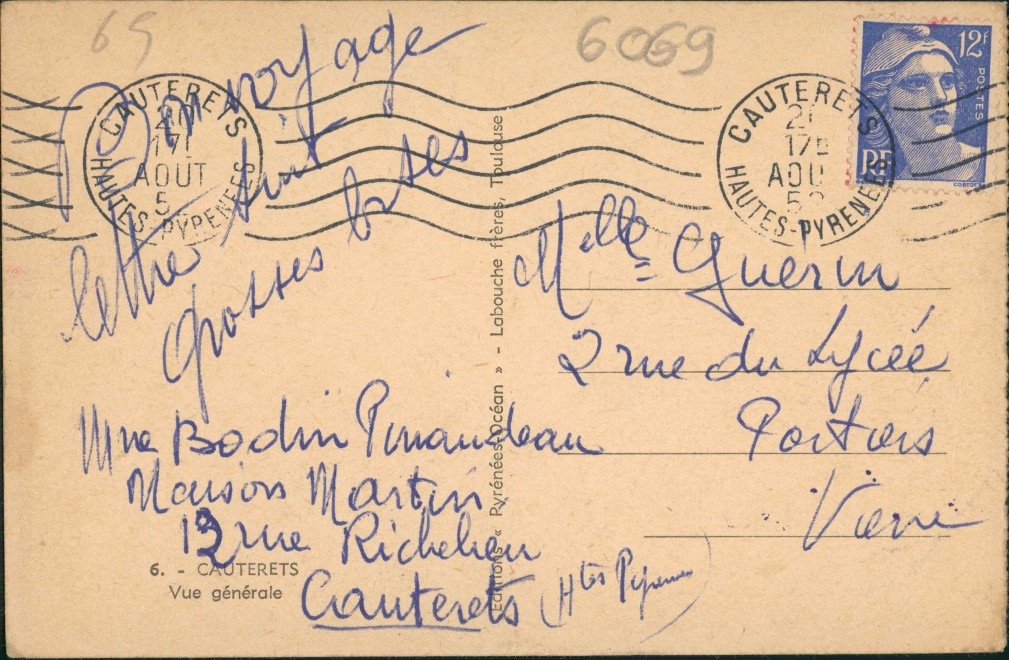 65
6069
Bon voyage
lettre suit
grosses bises
Mme Bodin Pinaudeau
Maison Martin
13 rue Richelieu
Cauterets (Htes Pyrénées)
6. - CAUTERETS
Vue générale
Editions « Pyrénées-Océan » - Labouche frères, Toulouse
CAUTERETS
17
AOUT
5
HAUTES-PYRENEES
CAUTERETS
17
AOU
HAUTES-PYRENEES
12f
POSTES
RF
Melle Guerin
2 rue du Lycée
Poitiers
Vienne